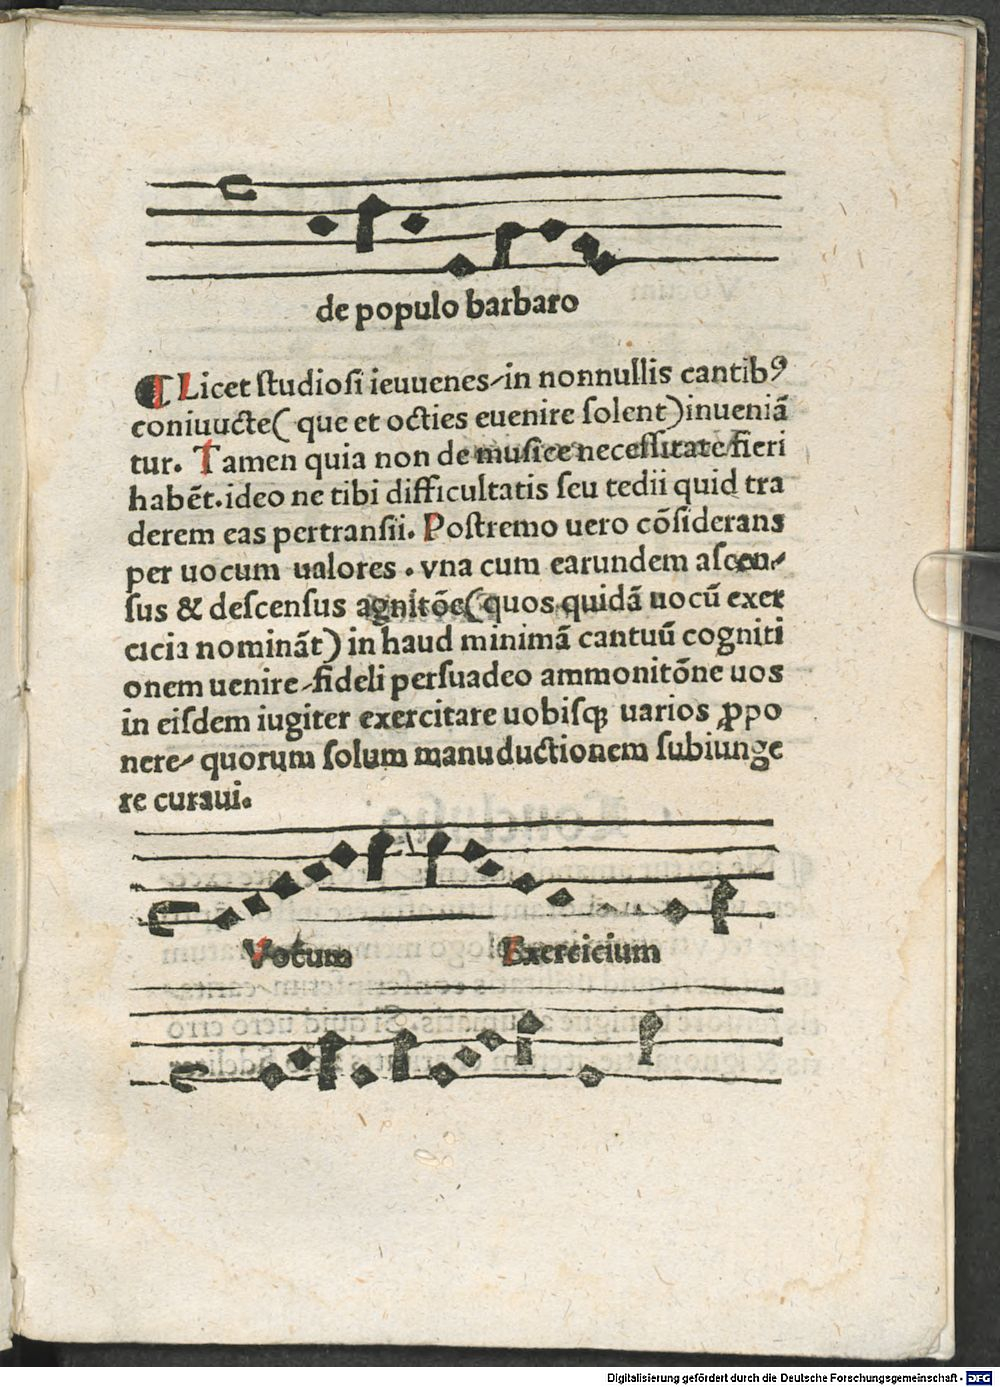 de populo barbaro
¶ Licet studiosi ieuuenes in nonnullis cantibꝰ
coniuucte( que et octies euenire solent)inueniã
tur. Tamen quia non de musice necessitate fieri
habẽt.ideo ne tibi difficultatis seu tedii quid tra
derem eas pertransii. Postremo uero cõsiderans
per uocum ualores . vna cum earundem ascen⸗
sus & descensus agnitõe(quos quidã uocũ exer
cicia nominãt) in haud minimã cantuũ cogniti
onem uenire⸗fideli persuadeo ammonitõne uos
in eisdem iugiter exercitare uobisqꝫ uarios ꝓpo
nere⸗ quorum solum manuductionem subiunge
re curaui.
Vocum Exercicium
Digitalisierung gefördert durch die Deutsche Forschungsgemeinschaft - DFG